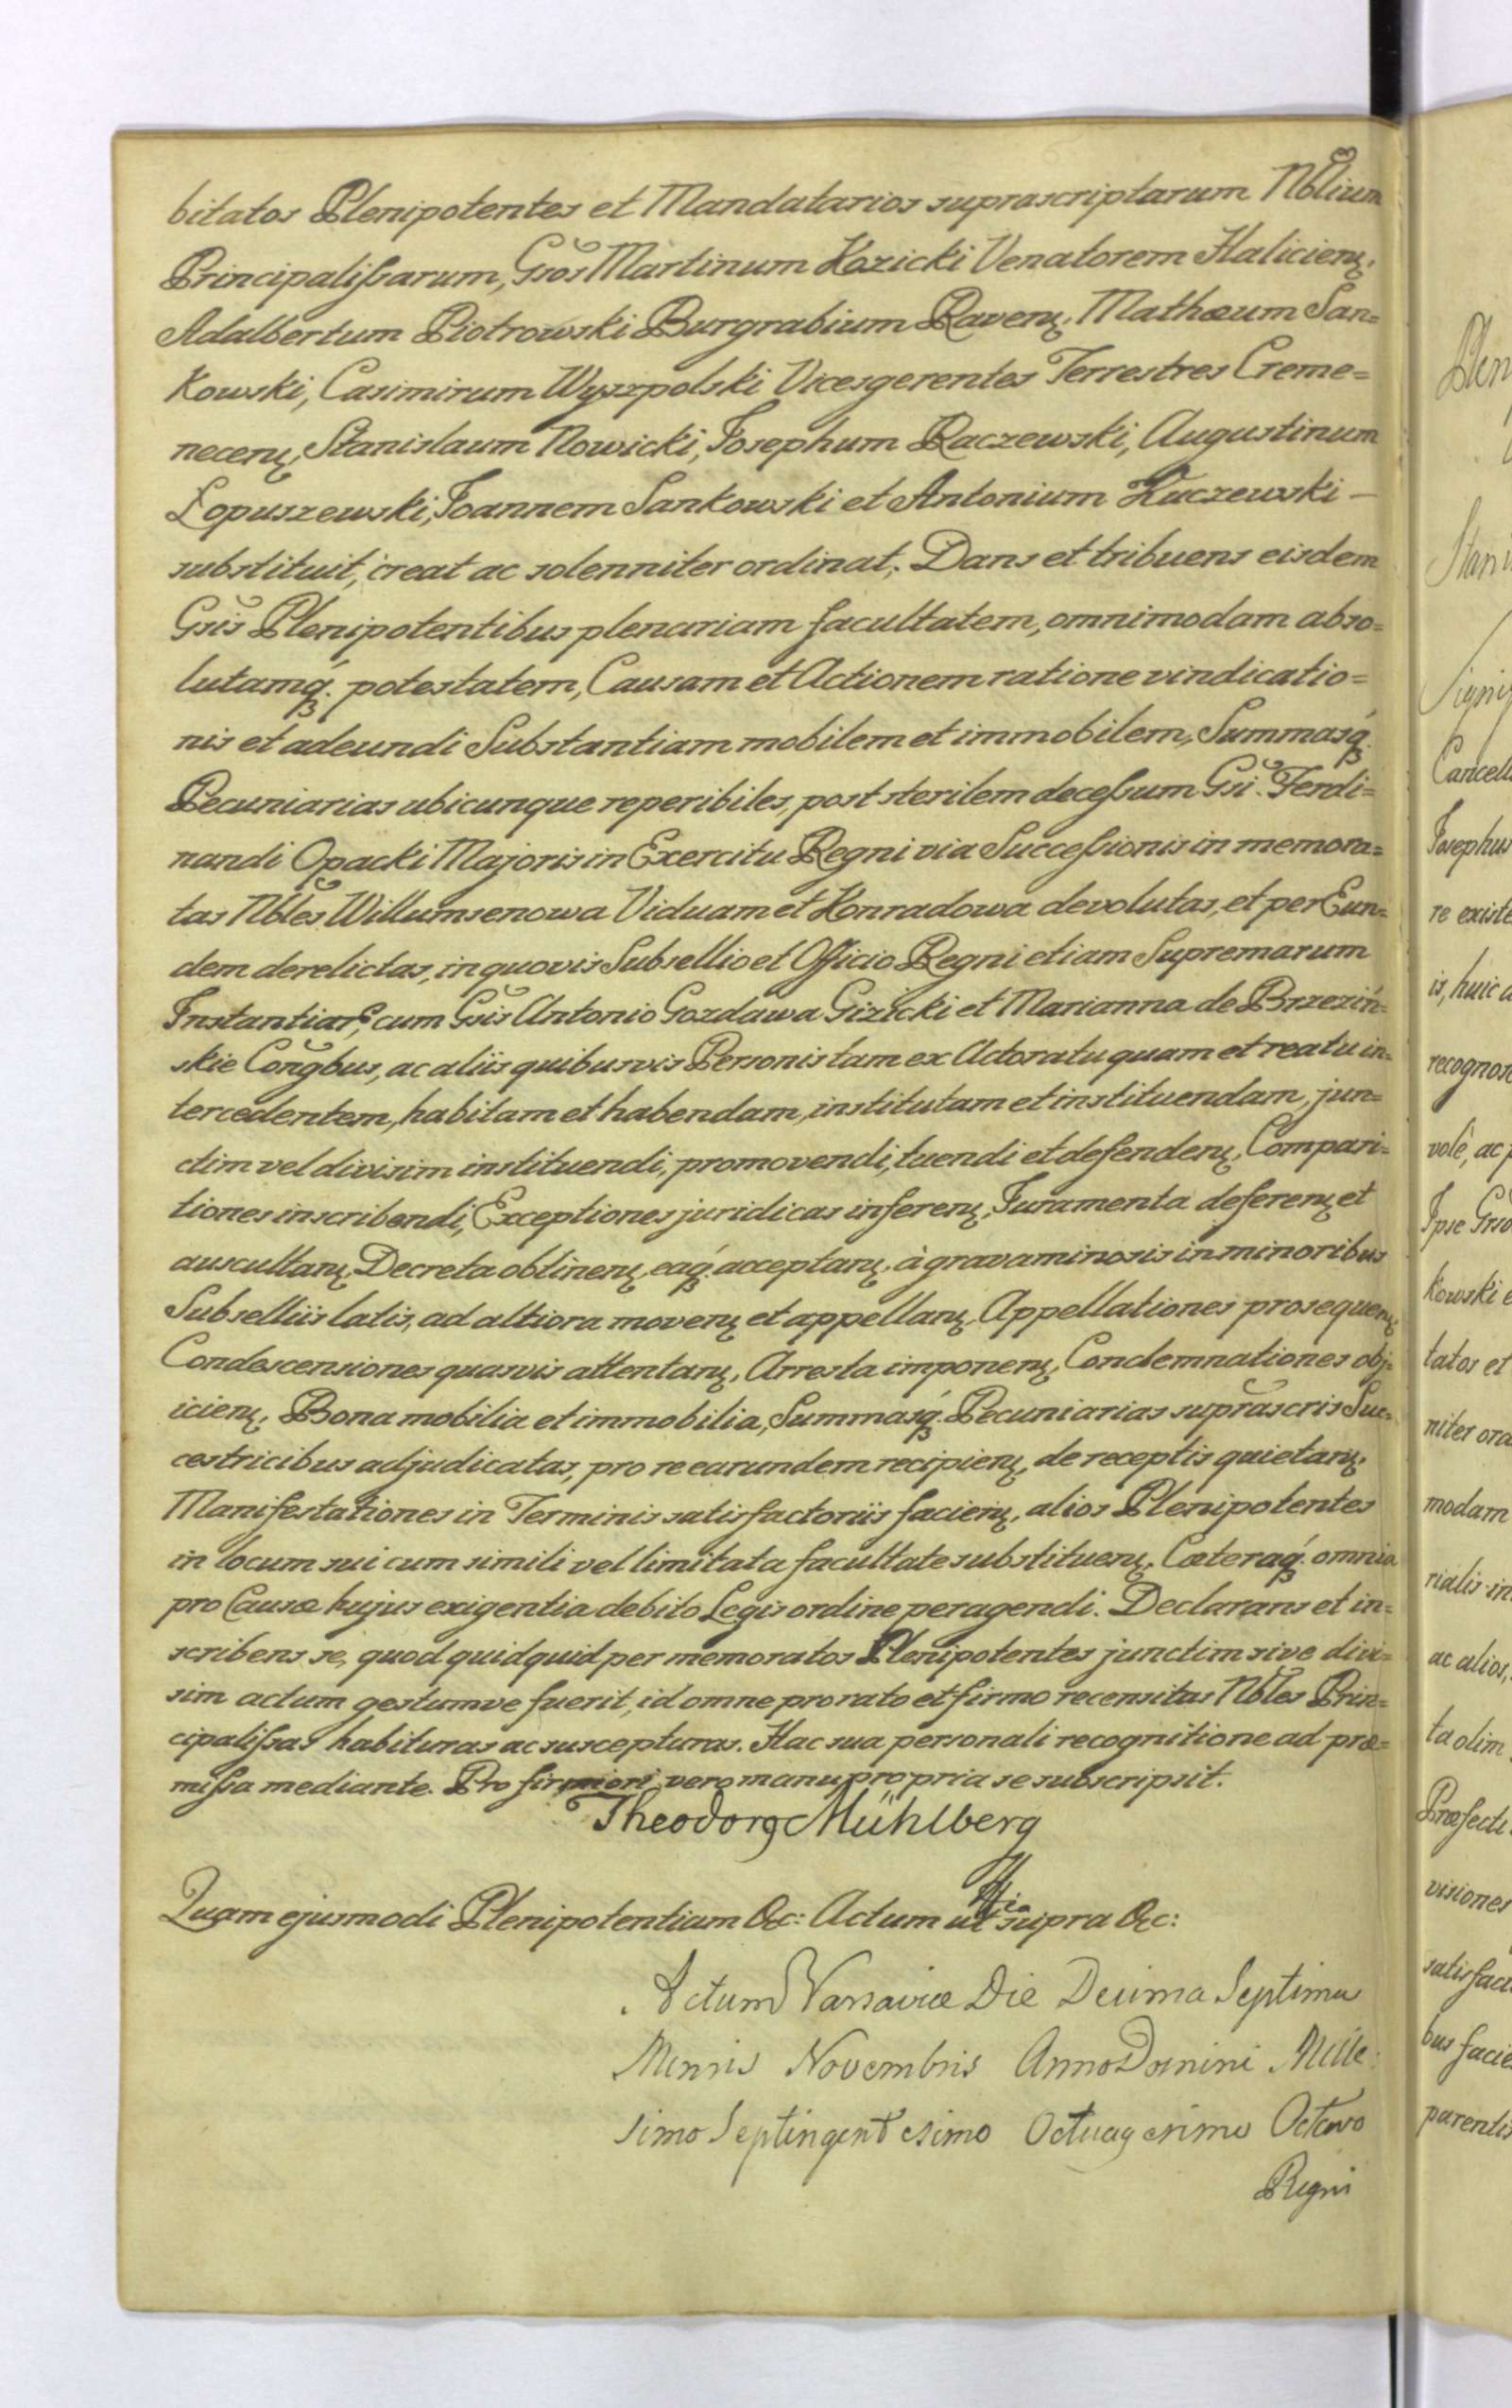 bitatos Plenipotentes et Mandatarios suprascriptarum Nblium
Principalißarum, Gsos Martinum Kozicki Venatorem Halicien̄:
Adalbertum Piotrowski Burgrabium Raven̄: Mathæum San=
kowski, Casimirum Wyszpolski Vicesgerentes Terrestres Creme=
necen̄, Stanislaum Nowicki, Josephum Raczewski, Augustinum
Łopuszewski, Joannem Sankowski et Antonium Kuczewski –
substituit, creat ac solenniter ordinat. Dans et tribuens eisdem
Gsis Plenipotentibus plenariam facultatem, omnimodam abso=
lutamq́. potestatem, Causam et Actionem ratione vindicatio=
nis et adeundi Substantiam mobilem et immobilem, Summasq́
Pecuniarias ubicunque reperibiles, post sterilem deceßum Gsi. Ferdi=
nandi Opacki Majoris in Exercitu Regni via Succeßionis in memora=
tas Nbles Willumsenowa Viduam et Konradowa devolutas, et per Eun=
dem derelictas, in quovis Subsellio et Officio Regni etiam Supremarum
Instantiar̄, cum Gsis Antonio Gozdawa Gizicki et Marianna de Brzeziń=
skie Congbus, ac aliis quibusvis Personis tam ex Actoratu quam et reatu in=
tercedentem, habitam et habendam, institutam et instituendam, jun=
ctim vel divisim instituendi, promovendi, tuendi et defenden̄, Compari=
tiones inscribendi, Exceptiones juridicas inferen̄, Juramenta deferen̄ et
auscultan̄, Decreta obtinen̄, eaq́. acceptan̄, à gravaminosis in minoribus
Subselliis latis, ad altiora moven̄ et appellan̄, Appellationes prosequen̄,
Condescensiones quasvis attentan̄, Arresta imponen̄, Condemnationes obj=
icien̄, Bona mobilia et immobilia, Summasq́. Pecuniarias suprascris Suc=
cestricibus adjudicatas, pro re earundem recipien̄, de receptis quietan̄,
Manifestationes in Terminis satisfactoriis facien̄, alios Plenipotentes
in locum sui cum simili vel limitata facultate substituen̄, Cæteraq́. omnia
pro Causæ hujus exigentia debito Legis ordine peragendi. Declarans et in=
scribens se, quod quidquid per memoratos Plenipotentes junctim sive divi=
sim actum gestumve fuerit, id omne pro rato et firmo recensitas Nbles Prin=
cipalißas habituras ac suscepturas. Hac sua personali recognitione ad præ=
mißa mediante. Pro firmiori vero manu propria se subscripsit.
Theodorg Mühlberg
Quam ejusmodi Plenipotentiam &c: Actum ut supra &c:
Actum Varsaviæ Die Decima Septima
Mensis Novembris Anno Domini Mille:
simo Septingentesimo Octuagesimo Octavo
Regni
Cancell
Josephus
re existe
is, huic a
recognos
volè, ac p
Ipse Grso
kowski e
tatos et
niter ord
modam
rialis in
ac alios,
ta olim
Præfecti
visiones
satisfact
bus facie
parentis